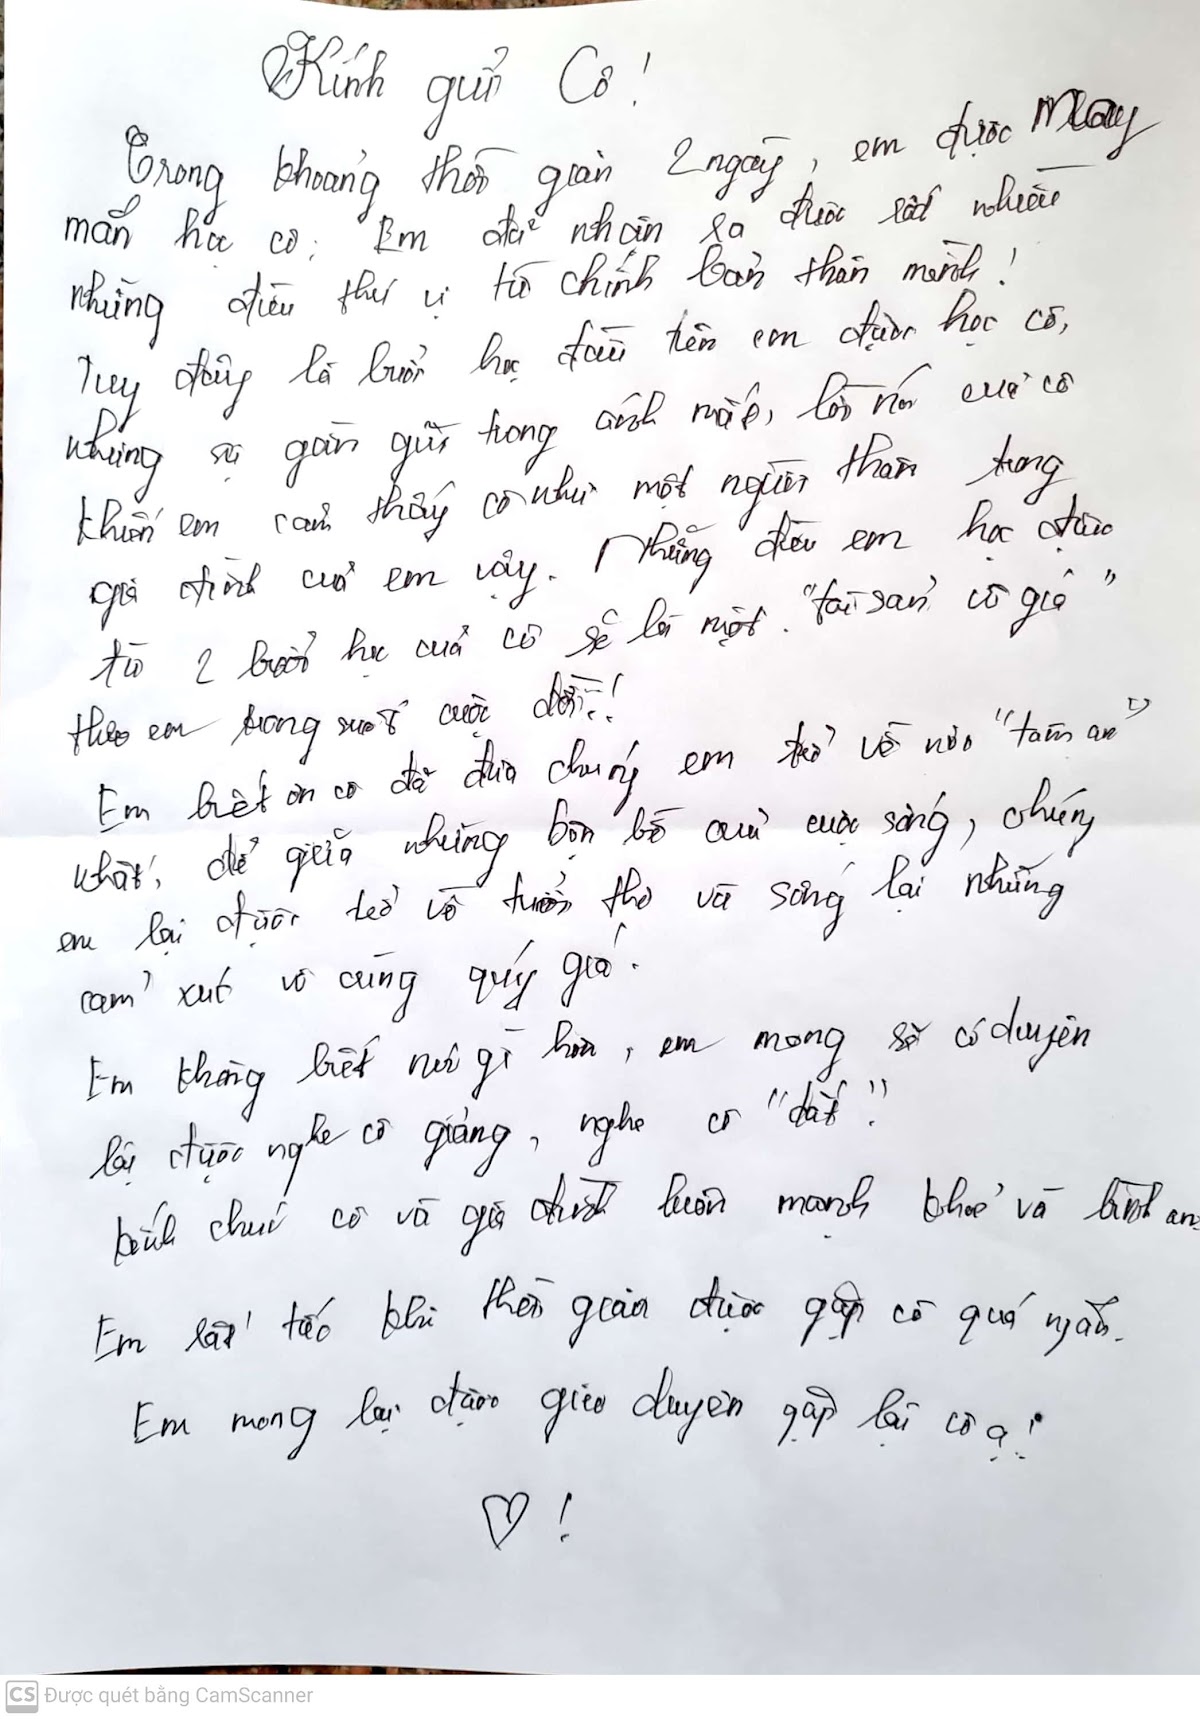 Kính gửi Cô!
Trong khoảng thời gian 2 ngày, em được may
mắn học cô. Em đã nhận ra được rất nhiều
những điều thú vị từ chính bản thân mình!
Tuy đây là buổi học đầu tiên em được học cô,
nhưng sự gần gũi trong ánh mắt, lời nói của cô
khiến em cảm thấy cô như một người thân trong
gia đình của em vậy. Những điều em học được
từ 2 buổi học của cô sẽ là một "tài sản vô giá"
theo em trong suốt cuộc đời...!
Em biết ơn cô đã đưa chúng em trở về nơi "tâm an"
nhất, để giữa những bộn bề của cuộc sống, chúng
em lại được trở về tuổi thơ và sống lại những
cảm xúc vô cùng quý giá.
Em không biết nói gì hơn, em mong sẽ có duyên
lại được nghe cô giảng, nghe cô "dắt".
Kính chúc cô và gia đình luôn mạnh khoẻ và bình an.
Em rất tiếc khi thời gian được gặp cô quá ngắn.
Em mong lại được gieo duyên gặp lại cô ạ!
♡!
CS Được quét bằng CamScanner